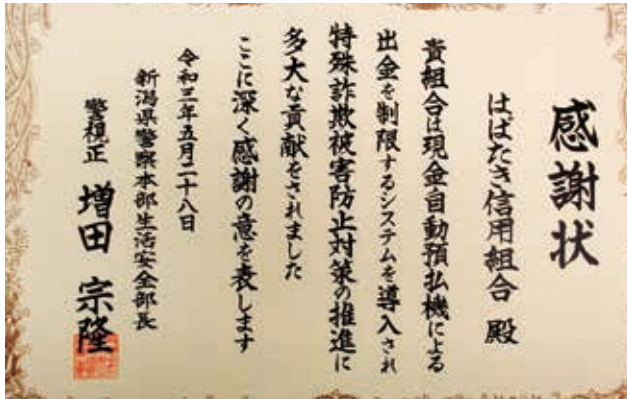 感謝状
はばたき信用組合 殿
貴組合は現金自動預払機による
出金を制限するシステムを導入され
特殊詐欺被害防止対策の推進に
多大な貢献をされました
ここに深く感謝の意を表します
令和三年五月二十八日
新潟県警察本部生活安全部長
警視正 増田 宗隆